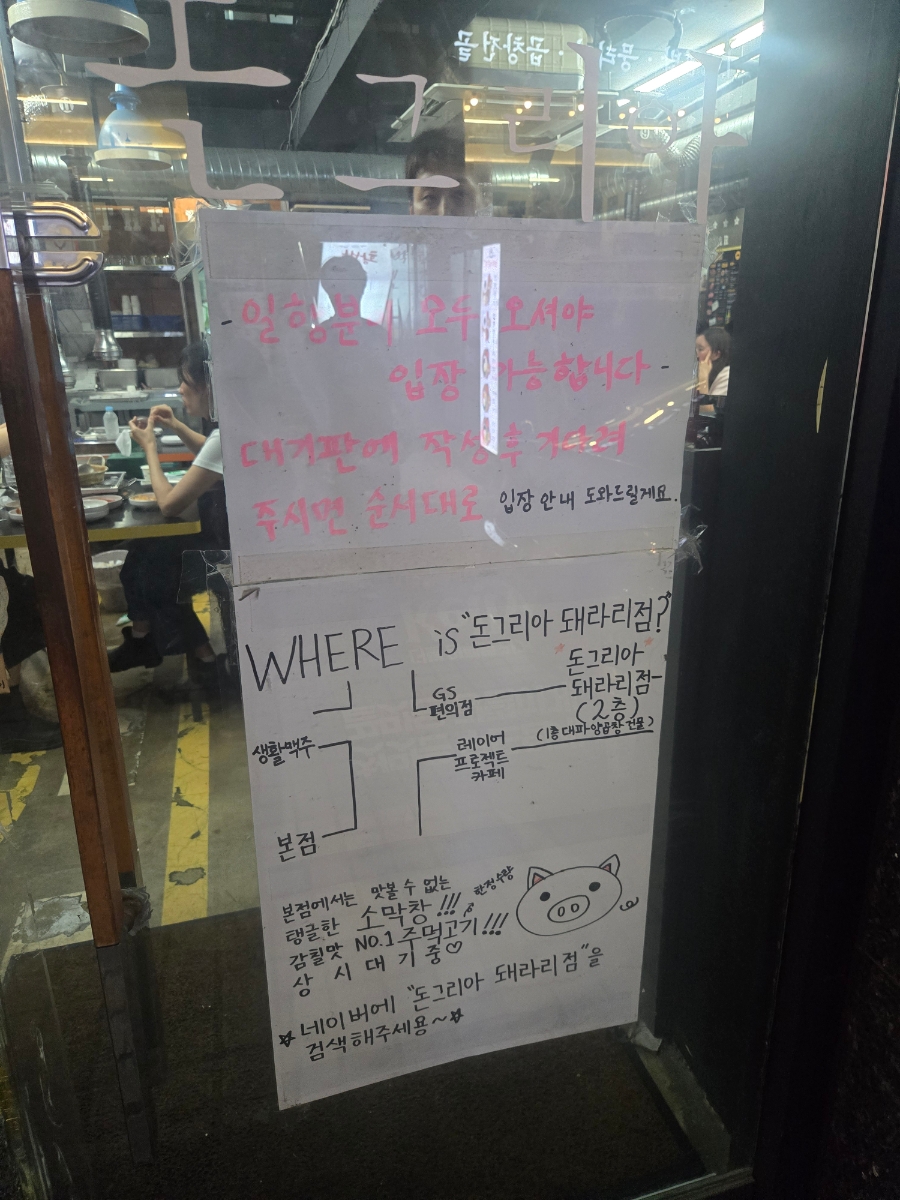 돈그리아
- 일행분이 모두 오셔야
입장 가능합니다 -
대기판에 작성 후 기다려
주시면 순서대로 입장 안내 도와드릴게요.
WHERE is "돈그리아 돼라리점?"
"돈그리아"
돼라리점-
(2층)
(1층 대파양곱창 건물)
GS
편의점
생활맥주
레이어
프로젝트
카페
본점
본점에서는 맛볼 수 없는
탱글한 소막창!!! 한정수량
감칠맛 NO.1 주먹고기!!!
상시대기중♡
☆ 네이버에 "돈그리아 돼라리점"을
검색해주세용~☆